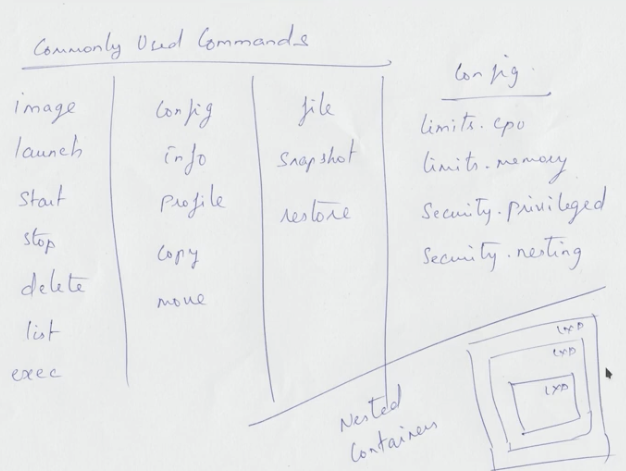 Commonly Used Commands
image
launch
start
stop
delete
list
exec
Config
info
profile
copy
move
file
snapshot
restore
Config
limits.cpu
limits.memory
Security.privileged
Security.nesting
Nested
Containers
LXD
LXD
LXD